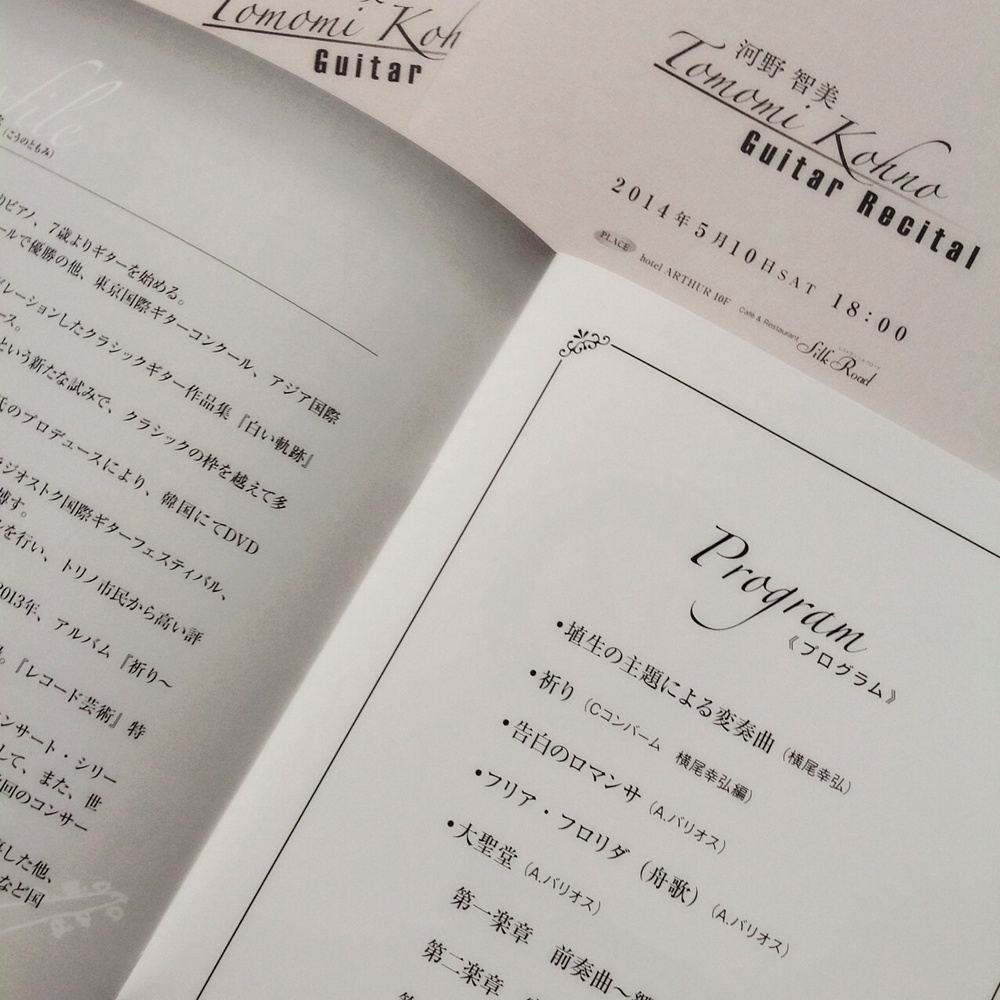 Tomomi Koh
Guitar
河野 智美
Tomomi Kohno
Guitar Recital
2014年5月10日SAT 18:00
PLACE hotel ARTHUR 10F Café & Restaurant Silk Road
file
(こうのともみ)
ピアノ、7歳よりギターを始める。
ールで優勝の他、東京国際ギターコンクール、アジア国際
レーションしたクラシックギター作品集『白い軌跡』
ース。
という新たな試みで、クラシックの枠を越えて多
氏のプロデュースにより、韓国にてDVD
ラジオストク国際ギターフェスティバル、
博す。
ルを行い、トリノ市民から高い評
2013年、アルバム『祈り～
。『レコード芸術』特
ンサート・シリー
して、また、世
回のコンサー
した他、
など国
Program
《プログラム》
•埴生の主題による変奏曲(横尾幸弘)
•祈り(Cコンバーム 横尾幸弘編)
•告白のロマンサ(A.バリオス)
•フリア・フロリダ(舟歌)(A.バリオス)
•大聖堂(A.バリオス)
第一楽章 前奏曲～
第二楽章